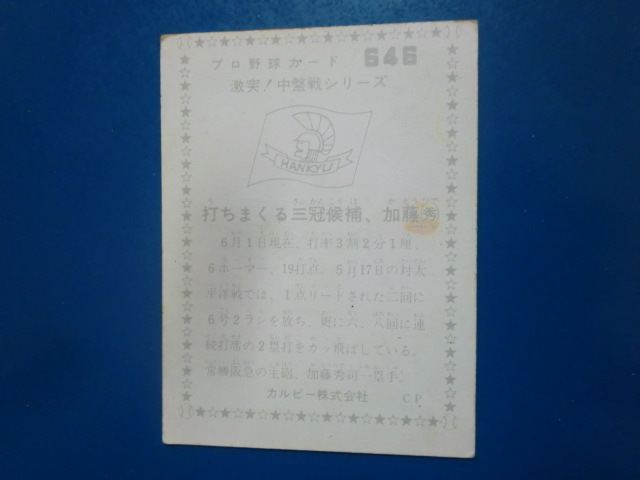 プロ野球カード 646
激突!中盤戦シリーズ
HANKYU
打ちまくる三冠候補、加藤(秀)
6月1日現在、打率3割2分1厘、
6ホーマー、19打点。5月17日の対太
平洋戦では、1点リードされた二回に
6号2ランを放ち、更に六、八回に連
続打席の2塁打をカッ飛ばしている。
常勝阪急の主砲、加藤秀司一塁手。
カルビー株式会社 CP